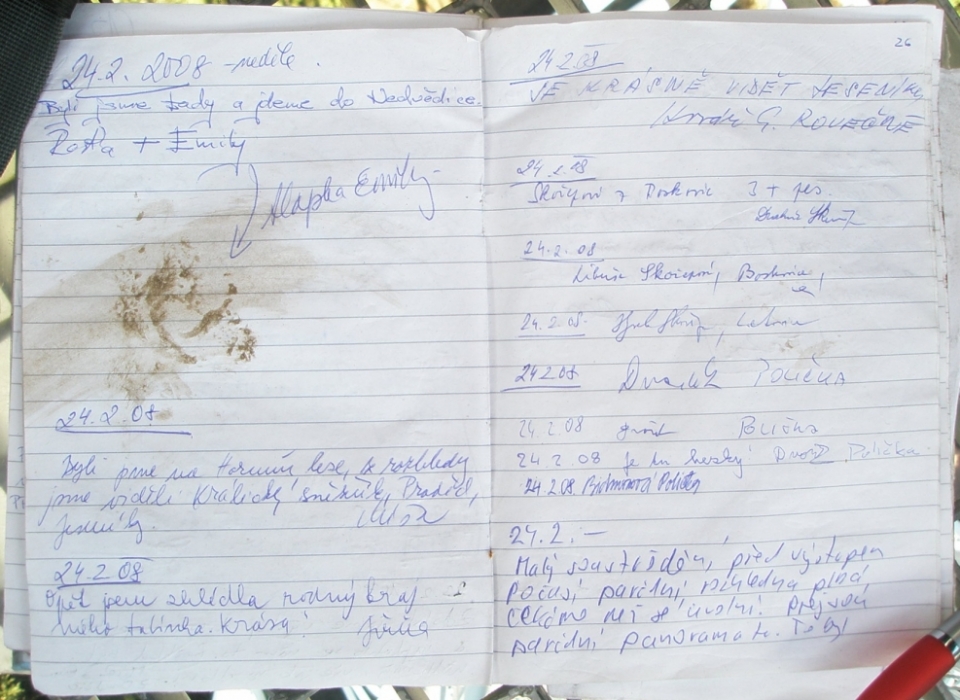 24.2. 2008 - neděle.
Byli jsme tady a jdeme do Nedvědice.
Rosťa + Emily
tlapka Emily
24.2.08
Byli jsme na Horním lese, z rozhledny
jsme viděli Králický sněžník, Praděd,
Jeseníky.
24.2.08
Opět jsem shlédla rodný kraj
mého tatínka. Krása! Jiřina
26
24.2.08
JE KRÁSNĚ VIDĚT JESENÍKY
G. ROVEČNÉ
24.2.08
z Boskovic 3 + pes.
24.2.08
Libuše Boskovice,
24.2.08. Letovice
24.2.08 Dvořák POLIČKA
24.2.08 Polička
24.2.08 je tu hezky Dvořá Polička.
24.2.08 Polička
24.2. -
Malý soustředění, před výstupem
Počasí parádní, rozhledna plná,
čekáme než se uvolní. Prej jsou
parádní panoramata. To byl